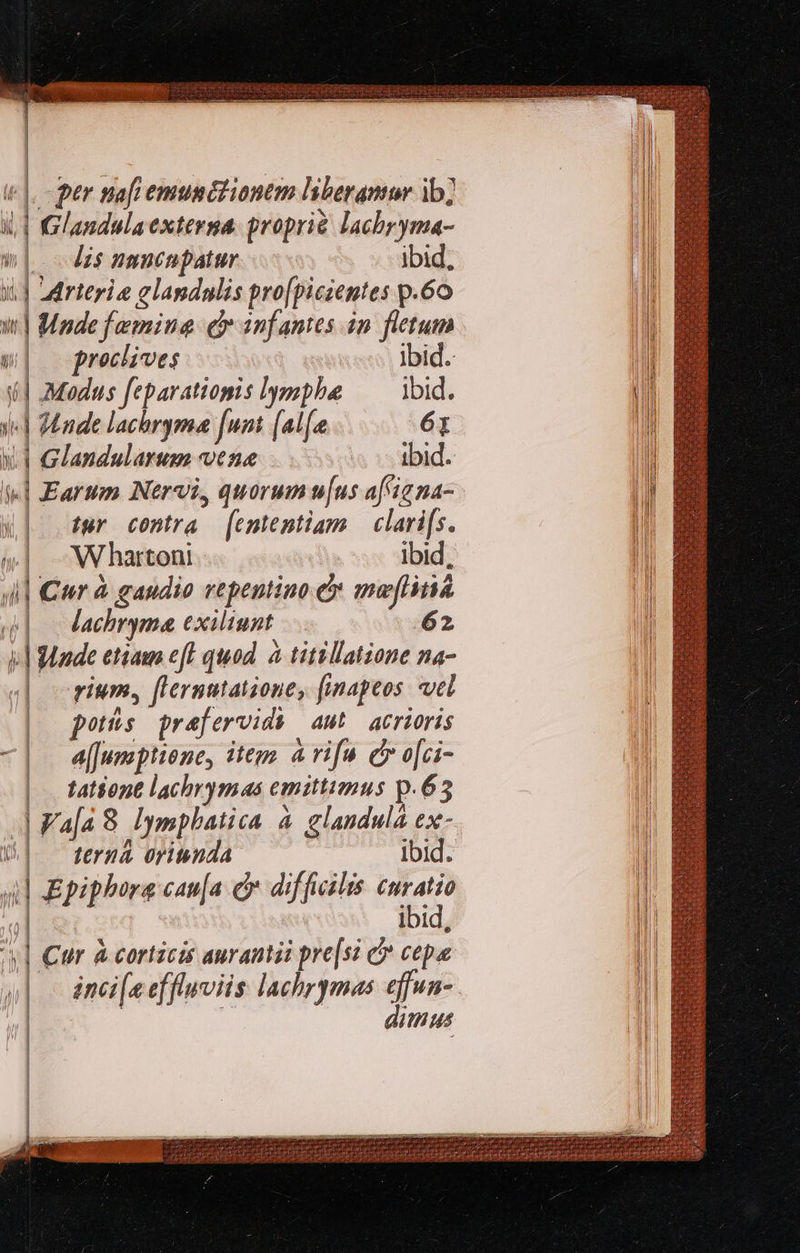 per nasi emunctionem liberamur ib.
Glandula externa propriè lachryma-
lis nuncupatur ibid.
Arteriæ glandulis prospicientes p.60
Unde fæminæ & infantes in fletum
proclives ibid.
Modus separationis lymphæ ibid.
Unde lachrymæ sunt salsæ 61
Glandularum venæ ibid.
Earum Nervi, quorum usus assigna-
tur contra sententiam clariss.
Whartoni ibid.
Cur à gaudio repentino & mæstitiâ
lachrymæ exiliunt 62
Unde etiam est quod à titillatione na-
rium, sternutatione, sinapeos vel
potûs præfervidi aut acrioris
assumptione, item à risu & osci-
tatione lachrymas emittimus p.63
Vasa 8 lymphatica à glandulâ ex-
ternâ oriunda ibid.
Epiphoræ causa & difficilis curatio
ibid,
Cur à corticis aurantii pressi & cepæ
incisæ effluviis lachrymas effun-
dimus